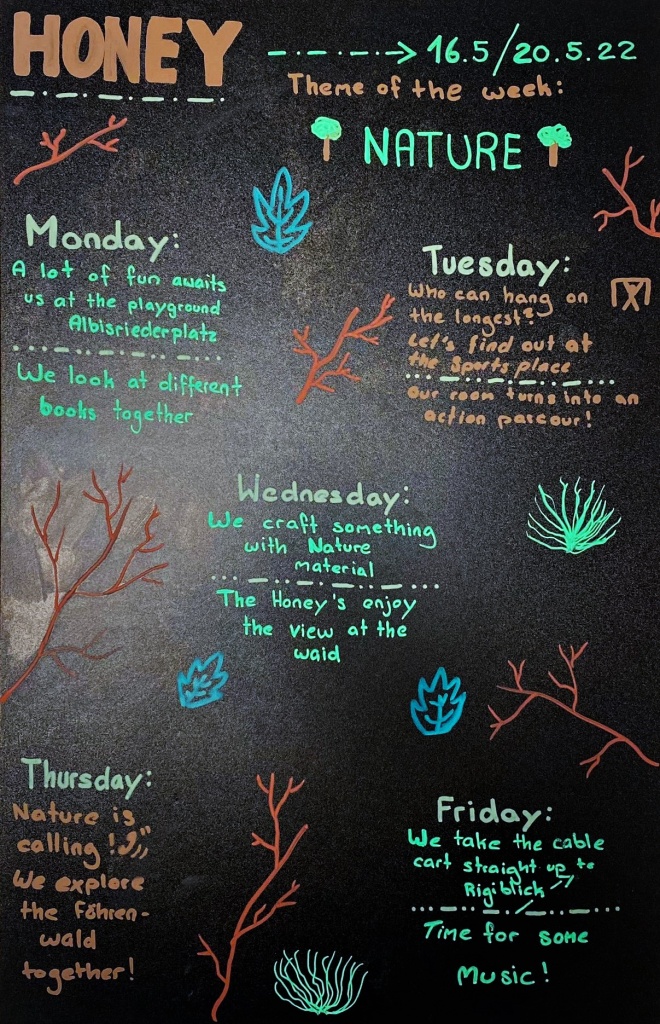 HONEY
16.5/20.5.22
Theme of the week:
NATURE
Monday:
A lot of fun awaits
us at the playground
Albisriederplatz
We look at different
books together
Tuesday:
Who can hang on
the longest?
Let's find out at
the Sports place
Our room turns into an
action parcour!
Wednesday:
We craft something
with Nature
material
The Honey's enjoy
the view at the
waid
Thursday:
Nature is
calling!
We explore
the Föhren-
wald
together!
Friday:
We take the cable
cart straight up to
Rigiblick
Time for some
Music!